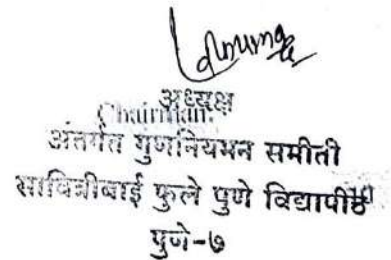 अध्यक्ष
Chairman
अंतर्गत गुणनियमन समीती
सावित्रीबाई फुले पुणे विद्यापीठ
पुणे-७